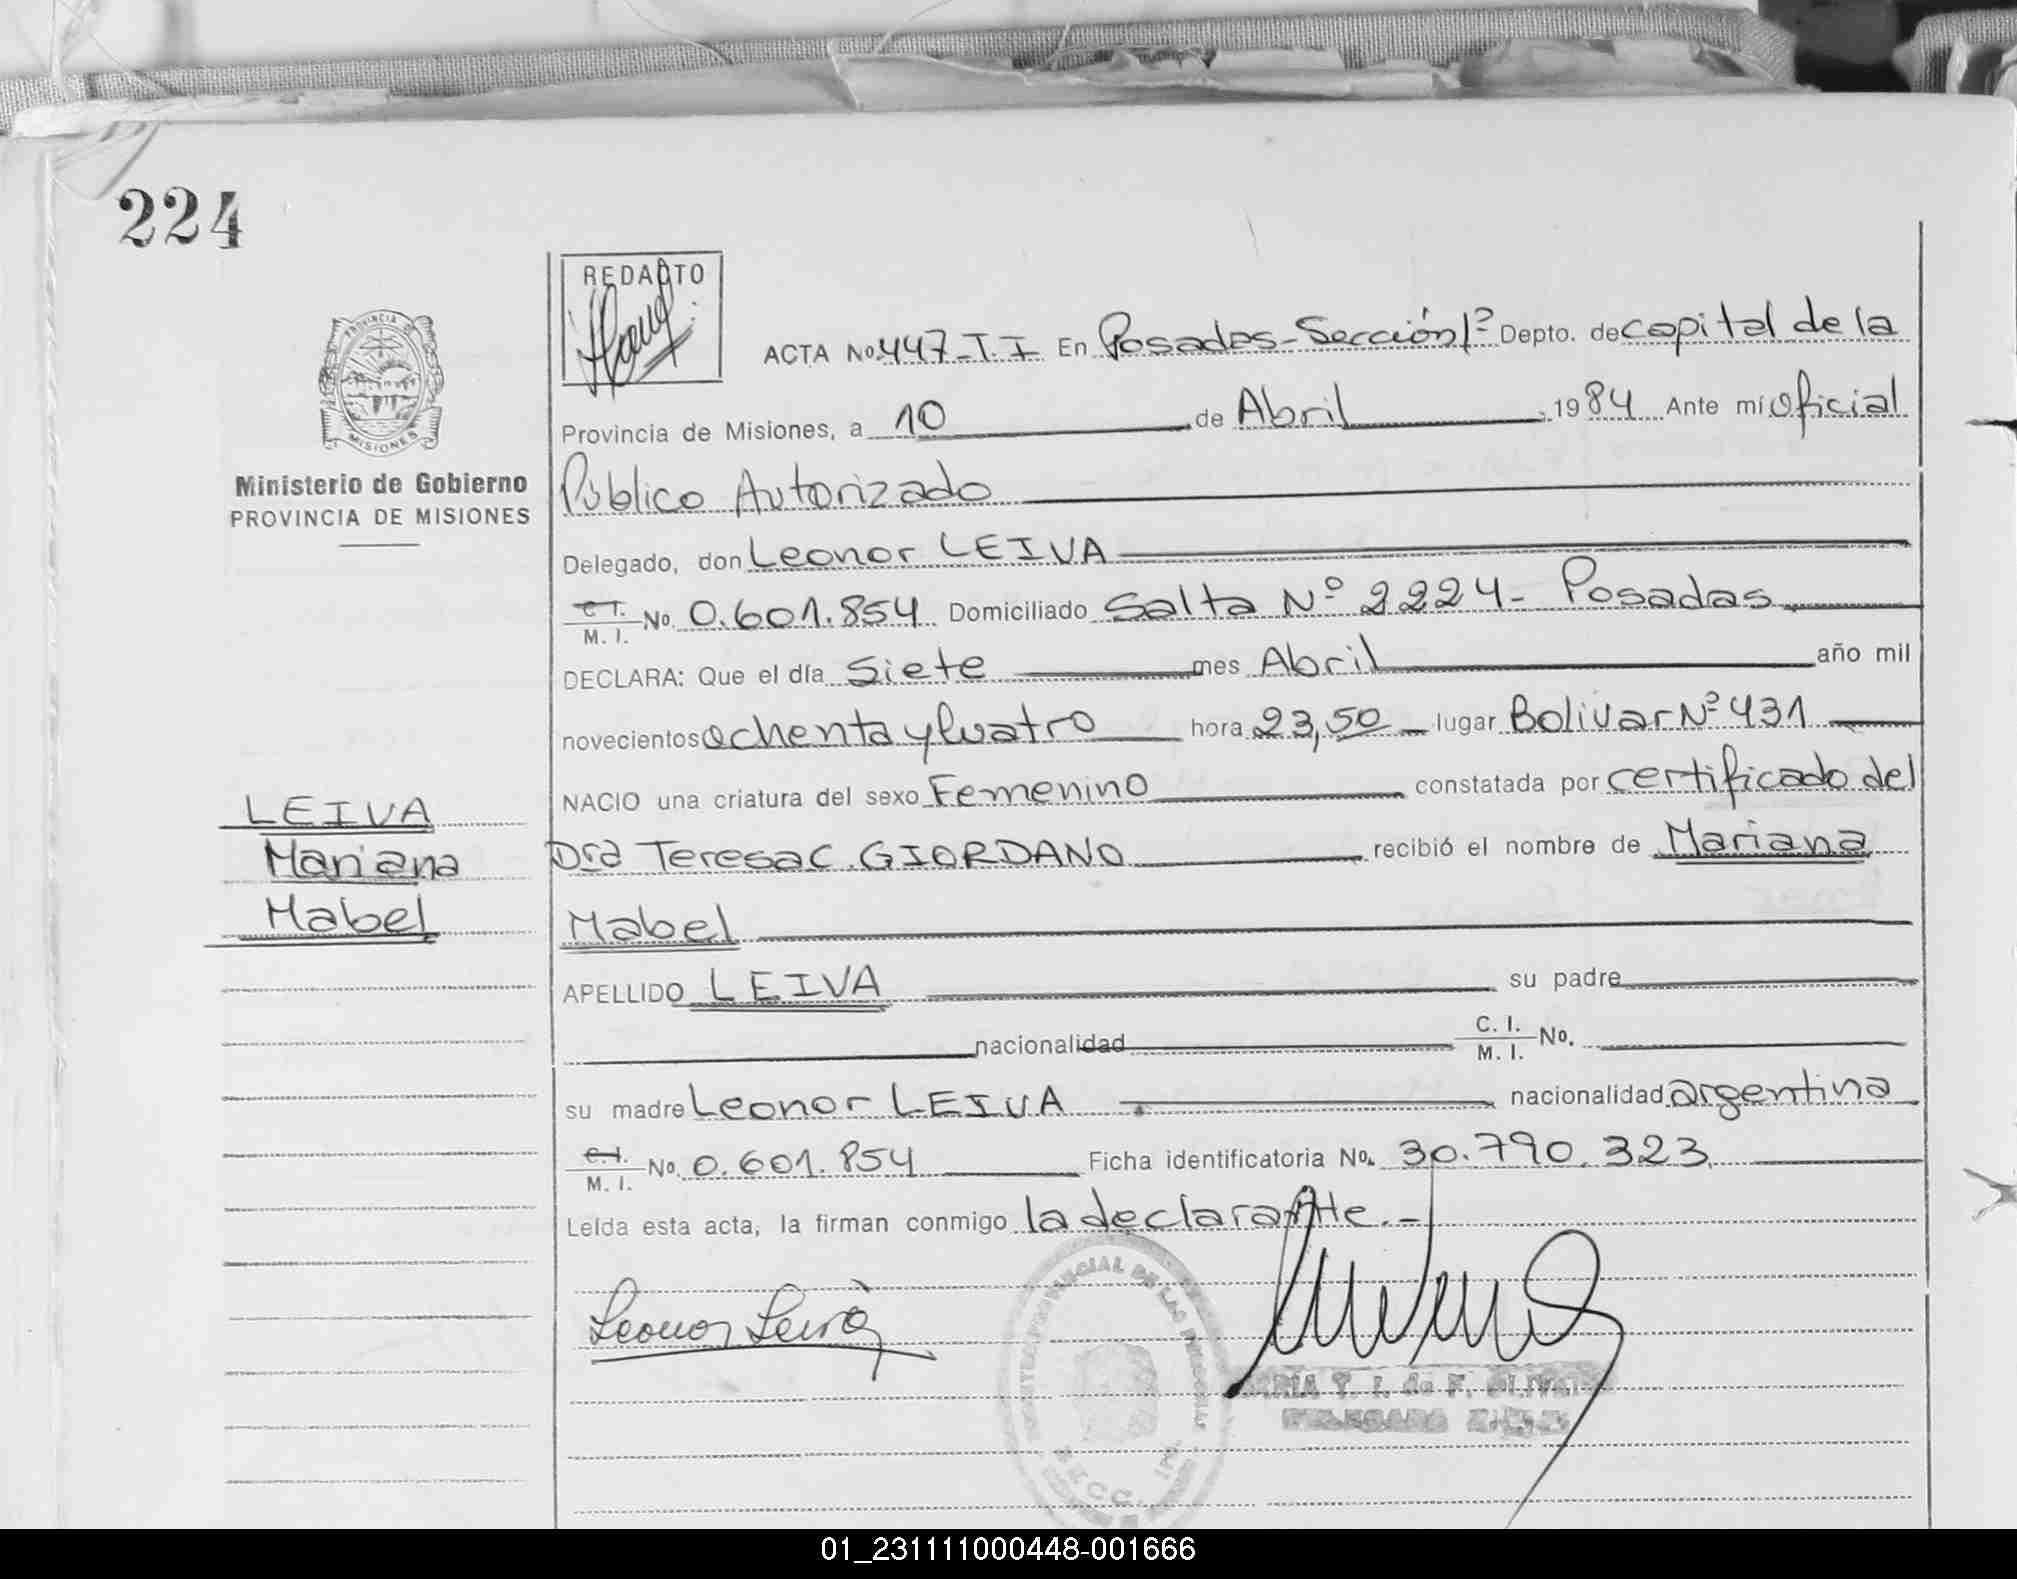 224
REDACTO
PROVINCIA DE
MISIONES
Ministerio de Gobierno
PROVINCIA DE MISIONES
ACTA No. 447-II En Posadas-Sección 1ª Depto. de capital de la
Provincia de Misiones, a 10 de Abril 1984 Ante mí oficial
Público Autorizado
Delegado, don Leonor LEIVA
C. I. / M. I. No. 0.601.854 Domiciliado Salta Nº 2224- Posadas
DECLARA: Que el día Siete mes Abril año mil
novecientos ochenta y cuatro hora 23,50 lugar Bolivar Nº 431
NACIO una criatura del sexo Femenino constatada por certificado del
Dra Teresa C. GIORDANO recibió el nombre de Mariana
Mabel
LEIVA
Mariana
Mabel
APELLIDO LEIVA su padre
nacionalidad C. I. / M. I. No.
su madre Leonor LEIVA nacionalidad argentina
C. I. / M. I. No. 0.601.854 Ficha identificatoria No. 30.790.323
Leída esta acta, la firman conmigo la declarante.-
Leonor Leiva
01_231111000448-001666